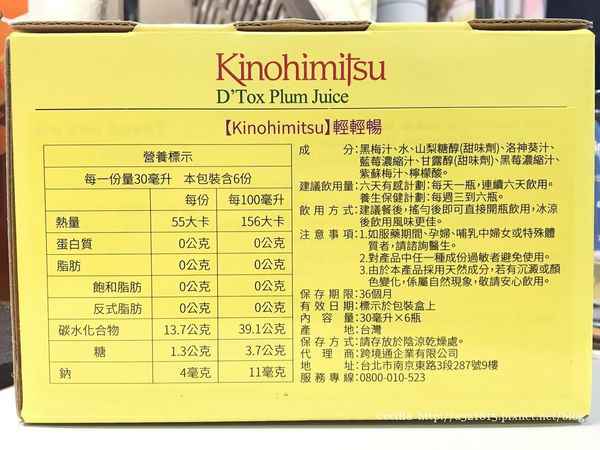 Kinohimitsu
D'Tox Plum Juice
【Kinohimitsu】輕輕暢
營養標示
每一份量30毫升 本包裝含6份
每份 每100毫升
熱量 55大卡 156大卡
蛋白質 0公克 0公克
脂肪 0公克 0公克
飽和脂肪 0公克 0公克
反式脂肪 0公克 0公克
碳水化合物 13.7公克 39.1公克
糖 1.3公克 3.7公克
鈉 4毫克 11毫克
成分:黑梅汁、水、山梨糖醇(甜味劑)、洛神葵汁、
藍莓濃縮汁、甘露醇(甜味劑)、黑莓濃縮汁、
紫蘇梅汁、檸檬酸。
建議飲用量:六天有感計劃:每天一瓶,連續六天飲用。
養生保健計劃:每週三到六瓶。
飲用方式:建議餐後,搖勻後即可直接開瓶飲用,冰涼
後飲用風味更佳。
注意事項:1.如服藥期間、孕婦、哺乳中婦女或特殊體
質者,請諮詢醫生。
2.對產品中任一種成份過敏者避免使用。
3.由於本產品採用天然成分,若有沉澱或顏
色變化,係屬自然現象,敬請安心飲用。
保存期限:36個月
有效日期:標示於包裝盒上
內容量:30毫升×6瓶
產地:台灣
保存方式:請存放於陰涼乾燥處。
代理商:跨境通企業有限公司
地址:台北市南京東路3段287號9樓
服務專線:0800-010-523